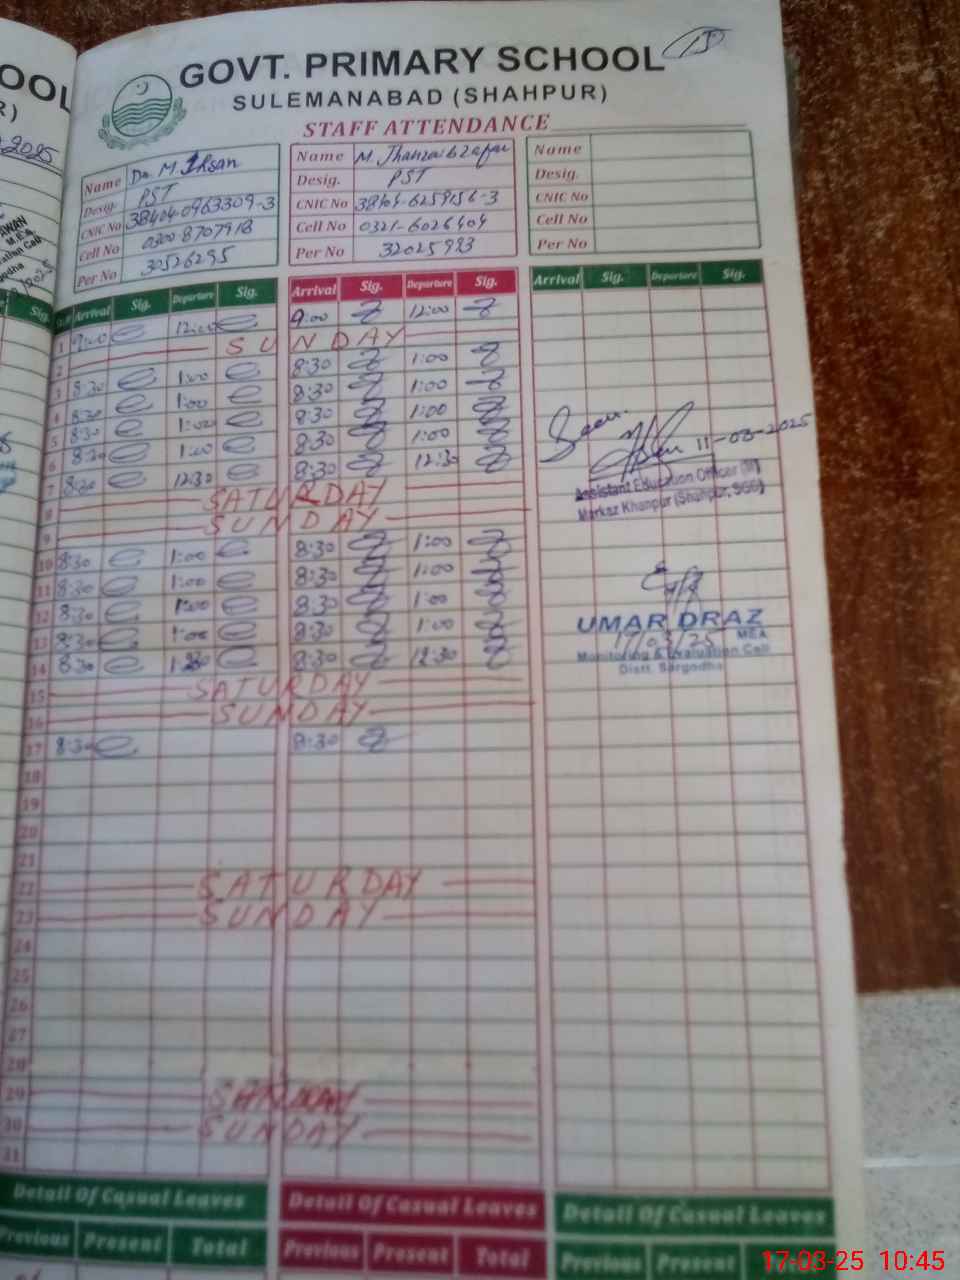 GOVT. PRIMARY SCHOOL
15
SULEMANABAD (SHAHPUR)
STAFF ATTENDANCE
2025
Name Dr. M. Ihsan
Desig. PST
CNIC No 38404-0963309-3
Cell No 0300-8707918
Per No 30526295
Name M. Jhanzaib Zafar
Desig. PST
CNIC No 38404-6259156-3
Cell No 0321-6026404
Per No 32025993
Name
Desig.
CNIC No
Cell No
Per No
Arrival Sig. Departure Sig. Arrival Sig. Departure Sig. Arrival Sig. Departure Sig.
1 9:00 12:00 9:00 12:00
2 SUNDAY
3 8:30 1:00 8:30 1:00
4 8:30 1:00 8:30 1:00
5 8:30 1:00 8:30 1:00
6 8:30 1:00 8:30 1:00
7 8:30 12:30 8:30 12:30
8 SATURDAY
9 SUNDAY
10 8:30 1:00 8:30 1:00
11 8:30 1:00 8:30 1:00
12 8:30 1:00 8:30 1:00
13 8:30 1:00 8:30 1:00
14 8:30 8:30 12:30
15 SATURDAY
16 SUNDAY
17 8:30 8:30
18
19
20
21
22 SATURDAY
23 SUNDAY
24
25
26
27
28
29
30 SUNDAY
31
Seen
11-03-2025
Assistant Education Officer (M)
Markaz Khanpur (Shahpur, SGD)
UMAR DRAZ
17/03/25 MEA
Monitoring & Evaluation Cell
Distt. Sargodha
Detail Of Casual Leaves Detail Of Casual Leaves Detail Of Casual Leaves
Previous Present Total Previous Present Total Previous Present Total
17-03-25 10:45